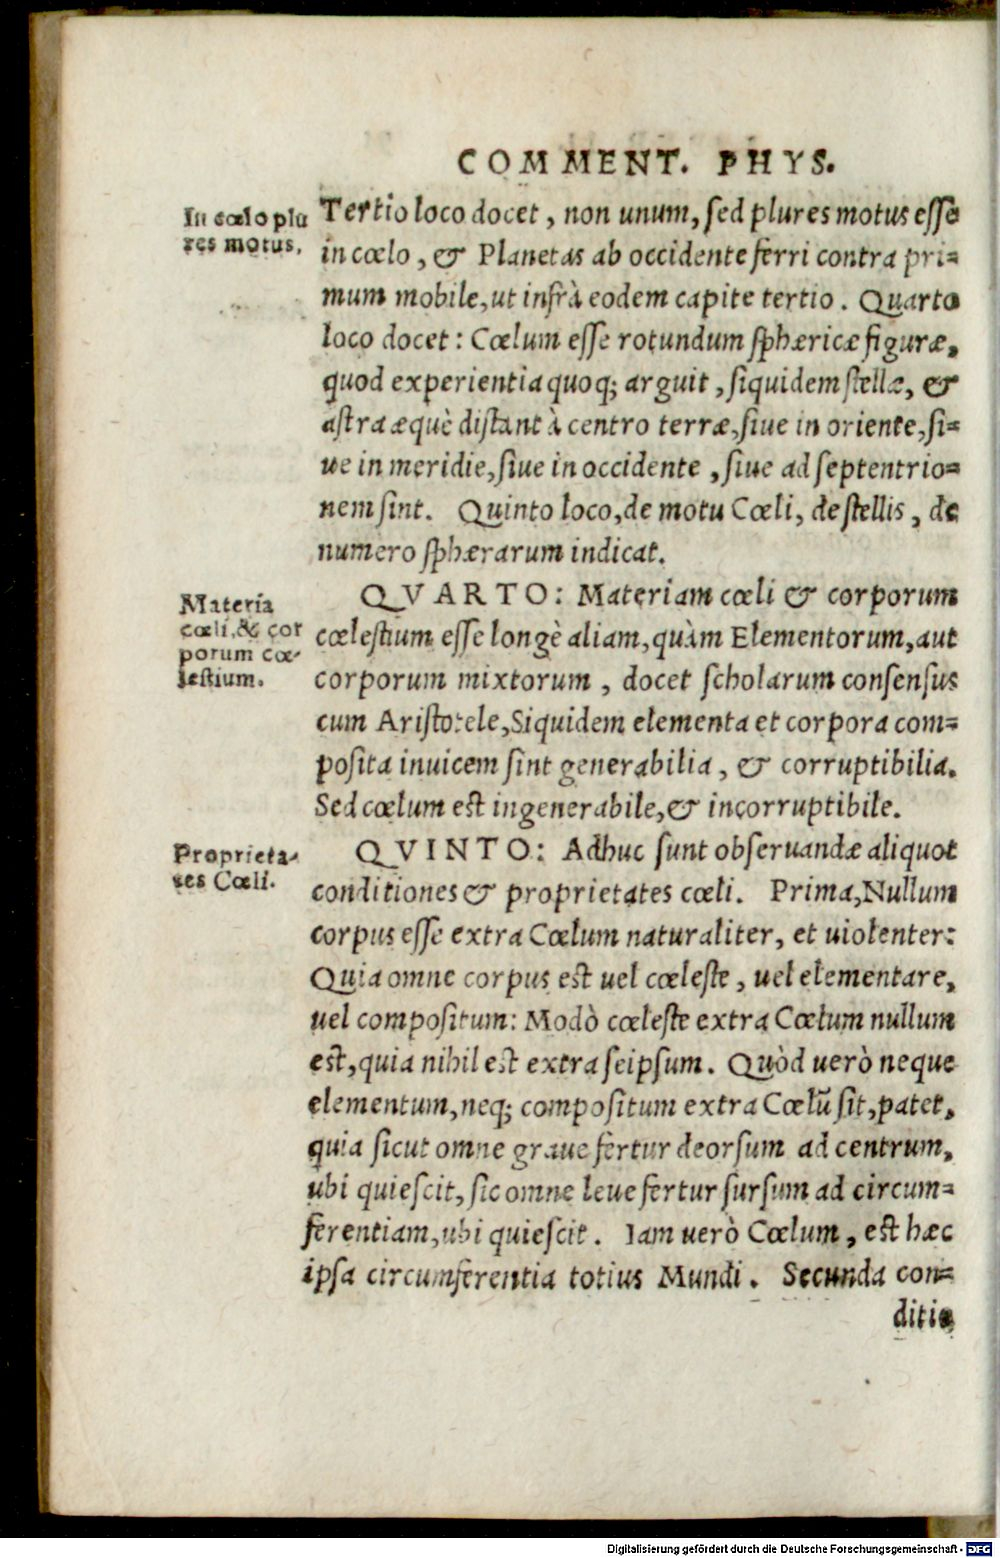 COMMENT. PHYS.
In cœlo plu
res motus.
Tertio loco docet, non unum, sed plures motus esse
in cœlo, & Planetas ab occidente ferri contra pri=
mum mobile, ut infrà eodem capite tertio. Quarto
loco docet: Cœlum esse rotundum sphæricæ figuræ,
quod experientia quoq; arguit, siquidem stellæ, &
astra æquè distant à centro terræ, siue in oriente, si=
ue in meridie, siue in occidente, siue ad septentrio=
nem sint. Quinto loco, de motu Cœli, de stellis, de
numero sphærarum indicat.
Materia
cœli, & cor
porum cœ-
lestium.
QVARTO: Materiam cœli & corporum
cœlestium esse longè aliam, quàm Elementorum, aut
corporum mixtorum, docet scholarum consensus
cum Aristotele, Siquidem elementa et corpora com=
posita inuicem sint generabilia, & corruptibilia.
Sed cœlum est ingenerabile, & incorruptibile.
Proprieta-
tes Cœli.
QVINTO: Adhuc sunt obseruandæ aliquot
conditiones & proprietates cœli. Prima, Nullum
corpus esse extra Cœlum naturaliter, et uiolenter:
Quia omne corpus est uel cœleste, uel elementare,
uel compositum: Modò cœleste extra Cœlum nullum
est, quia nihil est extra seipsum. Quòd uerò neque
elementum, neq; compositum extra Cœlũ sit, patet,
quia sicut omne graue fertur deorsum ad centrum,
ubi quiescit, sic omne leue fertur sursum ad circum=
ferentiam, ubi quiescit. Iam uerò Cœlum, est hæc
ipsa circumferentia totius Mundi. Secunda con=
ditio
Digitalisierung gefördert durch die Deutsche Forschungsgemeinschaft - DFG